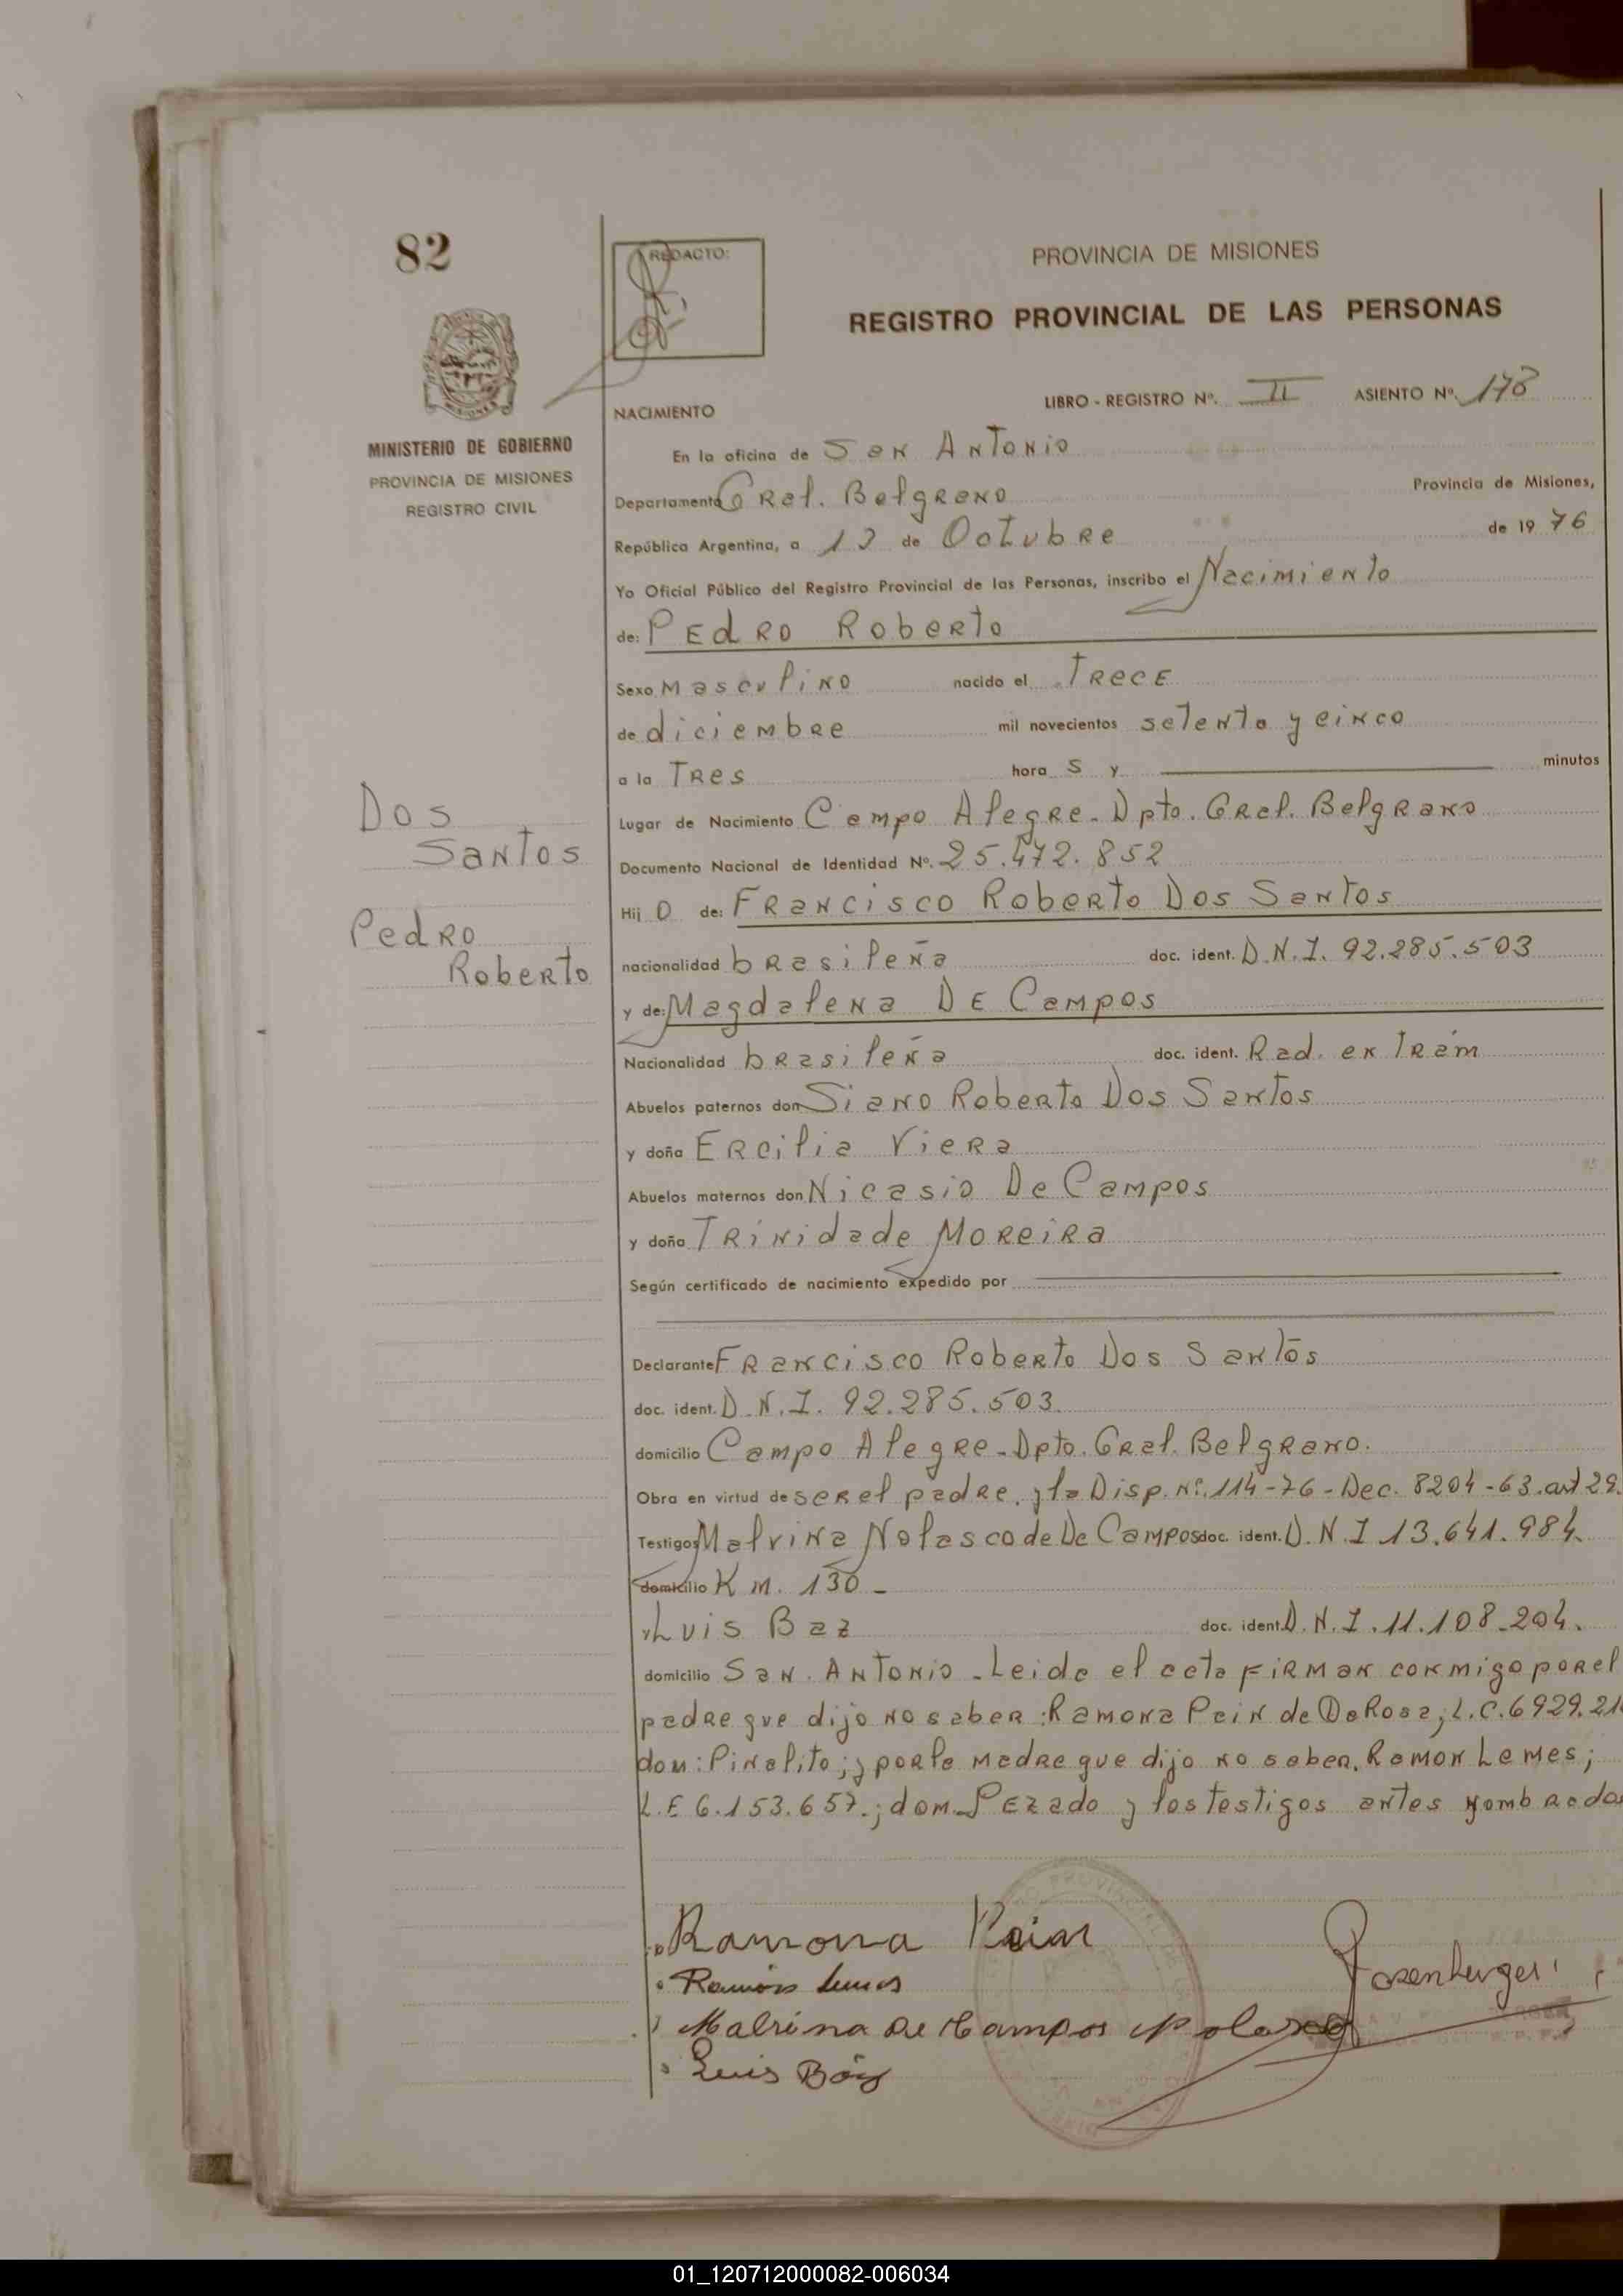 82
REDACTO:
PROVINCIA DE MISIONES
REGISTRO PROVINCIAL DE LAS PERSONAS
MINISTERIO DE GOBIERNO
PROVINCIA DE MISIONES
REGISTRO CIVIL
NACIMIENTO
LIBRO - REGISTRO Nº. II ASIENTO Nº. 178
En la oficina de San Antonio
Departamento Gral. Belgrano Provincia de Misiones,
República Argentina, a de Octubre de 1976
Yo Oficial Público del Registro Provincial de las Personas, inscribo el Nacimiento
de: Pedro Roberto
Sexo Masculino nacido el Trece
de diciembre mil novecientos setenta y cinco
a la Tres hora s y minutos
Dos
Santos
Pedro
Roberto
Lugar de Nacimiento Campo Alegre - Dpto. Gral. Belgrano
Documento Nacional de Identidad Nº. 25.472.852
Hij o de: Francisco Roberto Dos Santos
nacionalidad brasileña doc. ident. D.N.I. 92.285.503
y de: Magdalena De Campos
Nacionalidad brasileña doc. ident. Rad. en Trám
Abuelos paternos don Siano Roberto Dos Santos
y doña Ercilia Viera
Abuelos maternos don Nicasio De Campos
y doña Trinidade Moreira
Según certificado de nacimiento expedido por
Declarante Francisco Roberto Dos Santos
doc. ident. D.N.I. 92.285.503
domicilio Campo Alegre - Dpto. Gral. Belgrano.
Obra en virtud de ser el padre. y la Disp. Nº. 114-76 - Dec. 8204-63. art 29.
Testigos Malvina Nolasco de De Campos doc. ident. D.N.I 13.641.984.
domicilio Km. 130 -
y Luis Baz doc. ident. D.N.I. 11.108.204.
domicilio San Antonio - Leida el acta firman conmigo por el
padre que dijo no saber: Ramona Pein de DaRosa; L.C. 6929.21
dom: Pinalito; y por la madre que dijo no saber. Ramon Lemes;
L.E 6.153.657.; dom. Pezado y los testigos antes nombrados
Ramona Pein
Ramón Lemes
Malvina de Campos Nolasco
Luis Báz
Rosenberger
01_120712000082-006034